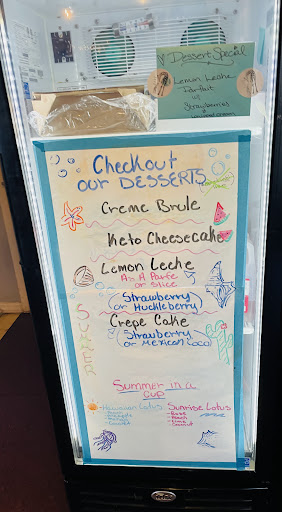 Dessert Special
Lemon Leche
Parfait
w/
Strawberries
Checkout
our DESSERTS
Creme Brule
Keto Cheesecake
Lemon Leche
As A Parfe
or slice
Strawberry
or Huckleberry
Crepe Cake
Strawberry
or Mexican Loco
SUMMER
Summer in a
cup
Hawaiian Lotus
Sunrise Lotus
- Rose
- Peach
- Lime
- Coconut